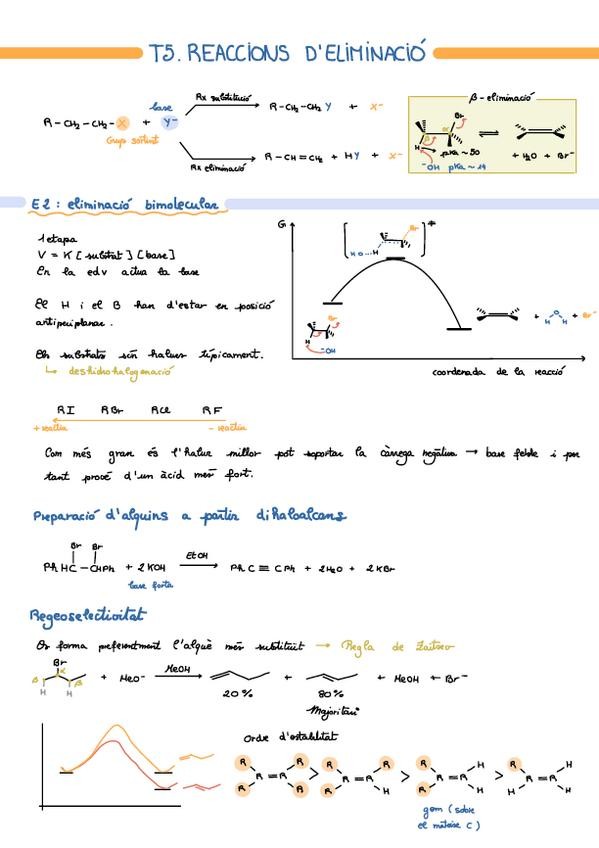 T5. REACCIONS D'ELIMINACIÓ
R-CH₂-CH₂-X + Y⁻
base
Grup sortint
Rx substitució
R-CH₂-CH₂ Y + X⁻
Rx eliminació
R-CH=CH₂ + HY + X⁻
β-eliminació
Br
β α
H pKa ~50
⁻OH pKa ~14
+ H₂O + Br⁻
E2: eliminació bimolecular
1 etapa
V = K [substrat] [base]
En la edv actua la base
El H i el B han d'estar en posició
antiperiplanar.
Els substrats són halurs típicament.
↳ deshidrohalogenació
G
Br
HO---H
≠
Br
H
⁻OH
+ H O H + Br⁻
coordenada de la reacció
RI RBr RCl RF
+ reactiu - reactiu
Com més gran és l'halur millor pot soportar la càrrega negativa → base feble i per
tant prové d'un àcid més fort.
Preparació d'alquins a partir dihaloalcans
Br Br
PhHC-CHPh + 2 KOH EtOH → PhC≡CPh + 2H₂O + 2KBr
base forta
Regeoselectivitat
Es forma preferentment l'alquè més substituit → Regla de Zaitsev
Br
β α β
H H
+ MeO⁻ MeOH → + + MeOH + Br⁻
20% 80%
Majoritari
Ordre d'estabilitat
R R R R R=R > R R R H R=R > R R H H R=R > R H H H R=R
gem (sobre
el mateixe C)